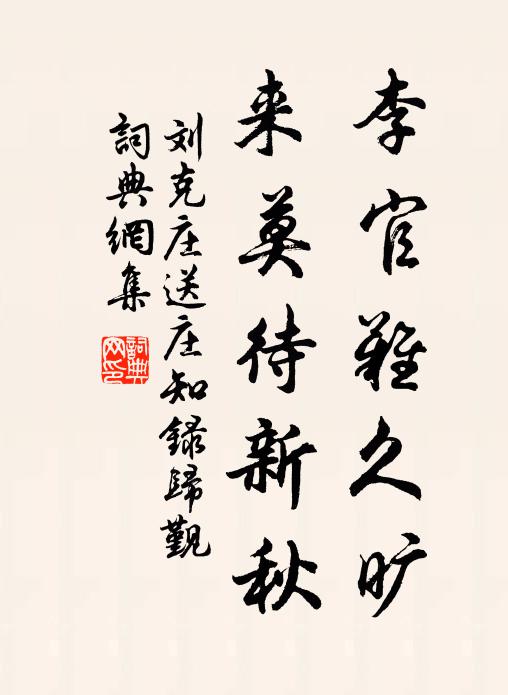 李官難久旷
来莫待新秋
刘克庄送庄知録歸覲
詞典網集
詞典网印